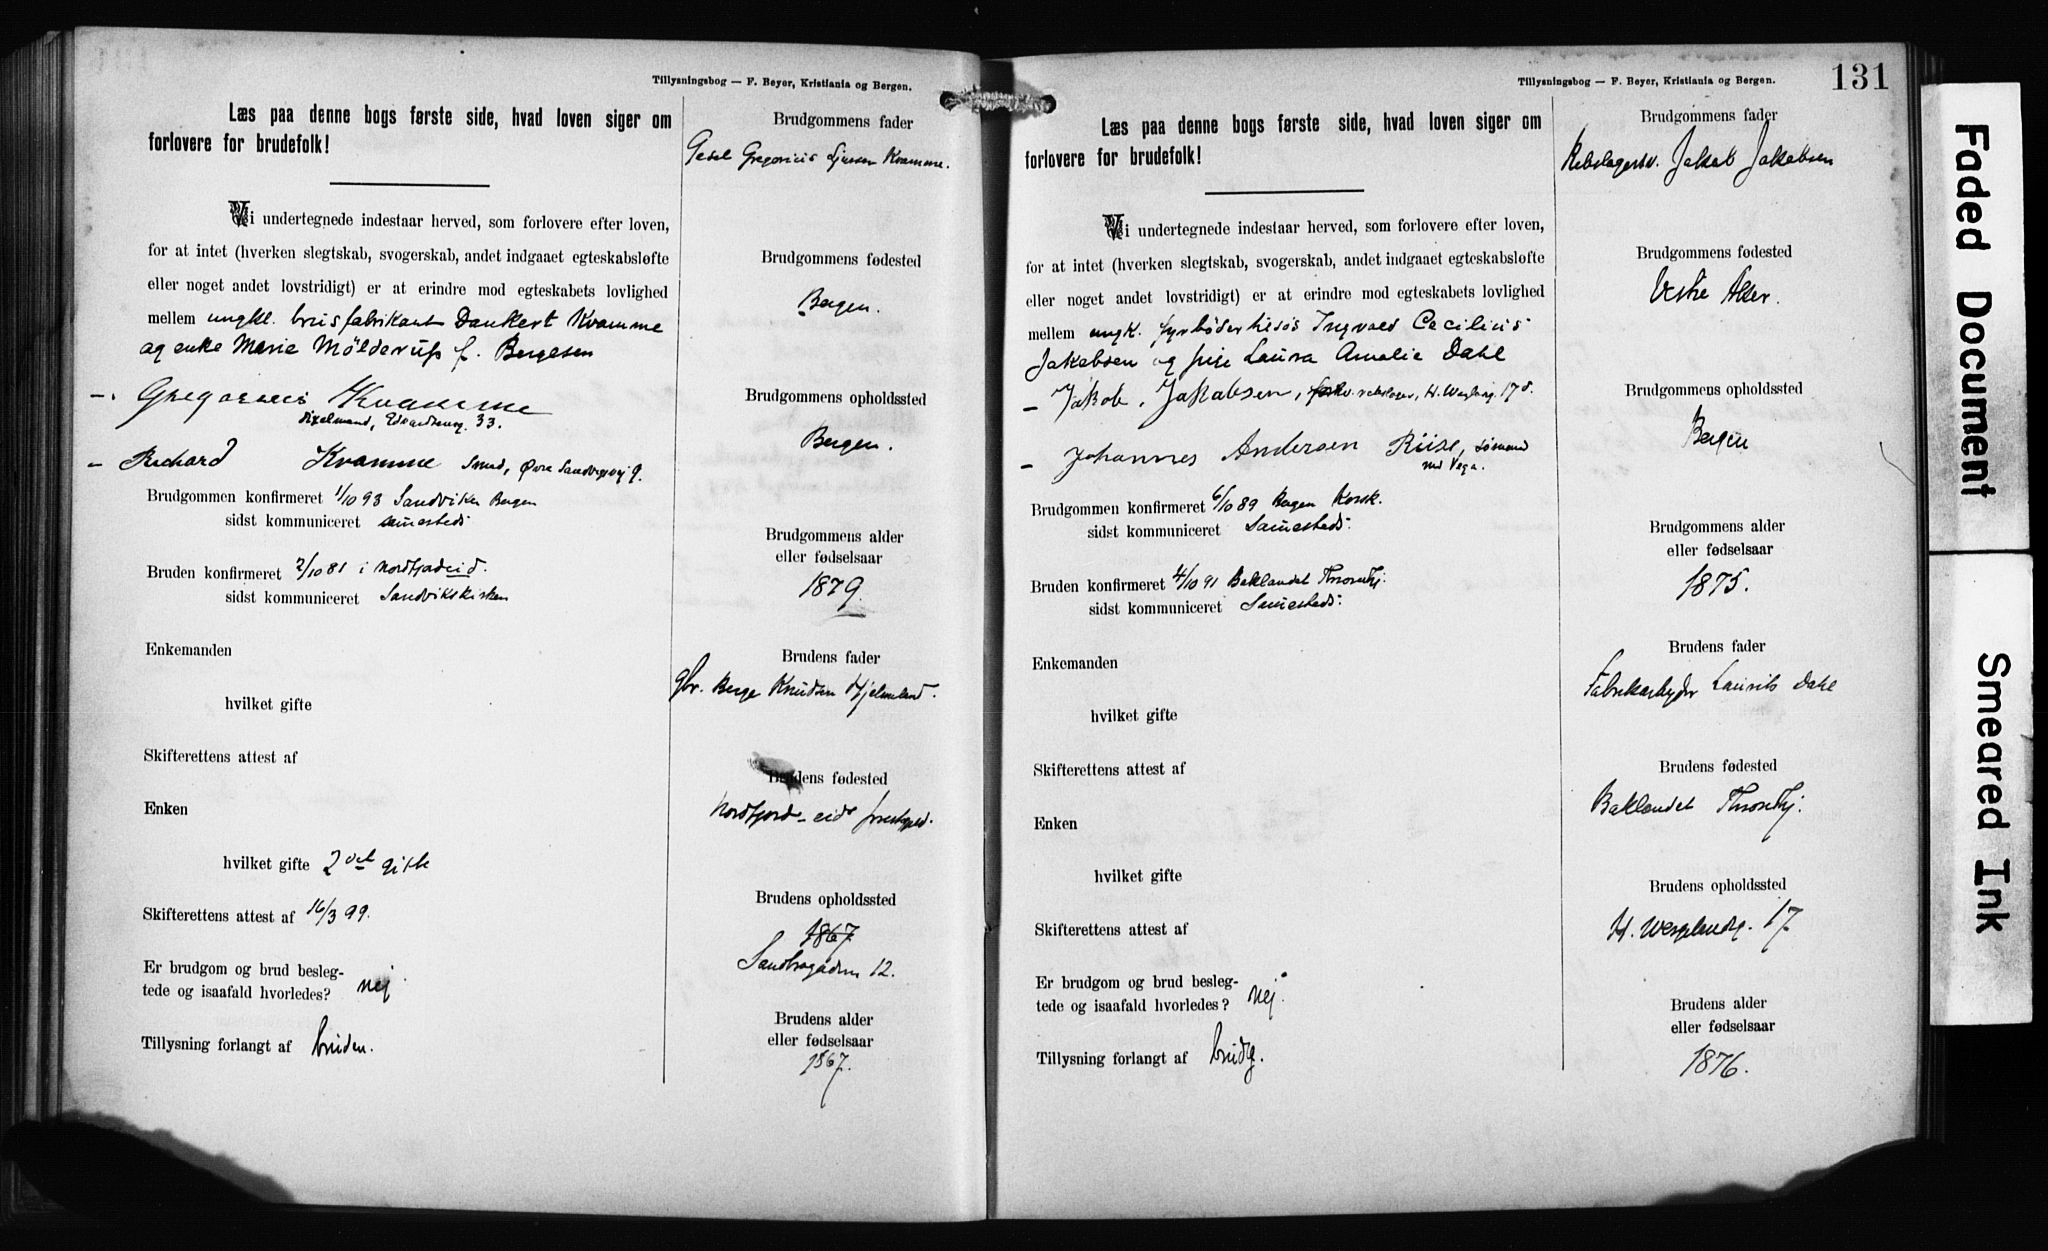 Tillysningsbog — F. Beyer, Kristiania og Bergen.
Læs paa denne bogs første side, hvad loven siger om
forlovere for brudefolk!
Vi undertegnede indestaar herved, som forlovere efter loven,
for at intet (hverken slegtskab, svogerskab, andet indgaaet egteskabsløfte
eller noget andet lovstridigt) er at erindre mod egteskabets lovlighed
mellem ungkl. brusfabrikant Dankert Kvamme
og enke Marie Mölderup f. Bergesen
Gregorius Kvamme
Edvardsensg. 33.
Richard Kvamme Smed, Øvre Sandvigsvej 9.
Brudgommen konfirmeret 1/10 93 Sandviken Bergen
sidst kommuniceret samesteds
Bruden konfirmeret 2/10 81 i Nordfjordeid.
sidst kommuniceret Sandvikskirken
Enkemanden
hvilket gifte
Skifterettens attest af
Enken
hvilket gifte 2det gifte
Skifterettens attest af 16/3 99.
Er brudgom og brud besleg-
tede og isaafald hvorledes? nej
Tillysning forlangt af bruden.
Brudgommens fader
Gregorius Kvamme.
Brudgommens fødested
Bergen.
Brudgommens opholdssted
Bergen.
Brudgommens alder
eller fødselsaar
1879.
Brudens fader
gbr. Berge Knudsen Hjelmeland.
Brudens fødested
Nordfjord-eid prestegjeld.
Brudens opholdssted
1867.
Sandbrogaden 12.
Brudens alder
eller fødselsaar
1867.
Tillysningsbog — F. Beyer, Kristiania og Bergen.
131
Læs paa denne bogs første side, hvad loven siger om
forlovere for brudefolk!
Vi undertegnede indestaar herved, som forlovere efter loven,
for at intet (hverken slegtskab, svogerskab, andet indgaaet egteskabsløfte
eller noget andet lovstridigt) er at erindre mod egteskabets lovlighed
mellem ungk. fyrbøder tilsøs Ingvald Cecilius
Jakobsen og pige Laura Amalie Dahl
Jakob. Jakobsen, rebslager, H. Werglsg. 17
Johannes Andersen Riise, sømand
Vega.
Brudgommen konfirmeret 6/10 89 Bergen Korsk.
sidst kommuniceret Samesteds.
Bruden konfirmeret 4/10 91 Baklandet Throndhj.
sidst kommuniceret Samesteds.
Enkemanden
hvilket gifte
Skifterettens attest af
Enken
hvilket gifte
Skifterettens attest af
Er brudgom og brud besleg-
tede og isaafald hvorledes? nej.
Tillysning forlangt af brudg.
Brudgommens fader
Rebslagersv. Jakob Jakobsen
Brudgommens fødested
Vestre Aker.
Brudgommens opholdssted
Bergen
Brudgommens alder
eller fødselsaar
1875.
Brudens fader
Fabrikarbejder Laurits Dahl
Brudens fødested
Baklandet Throndhj.
Brudens opholdssted
H. Wergelandsg. 17.
Brudens alder
eller fødselsaar
1876.
Faded Document
Smeared Ink